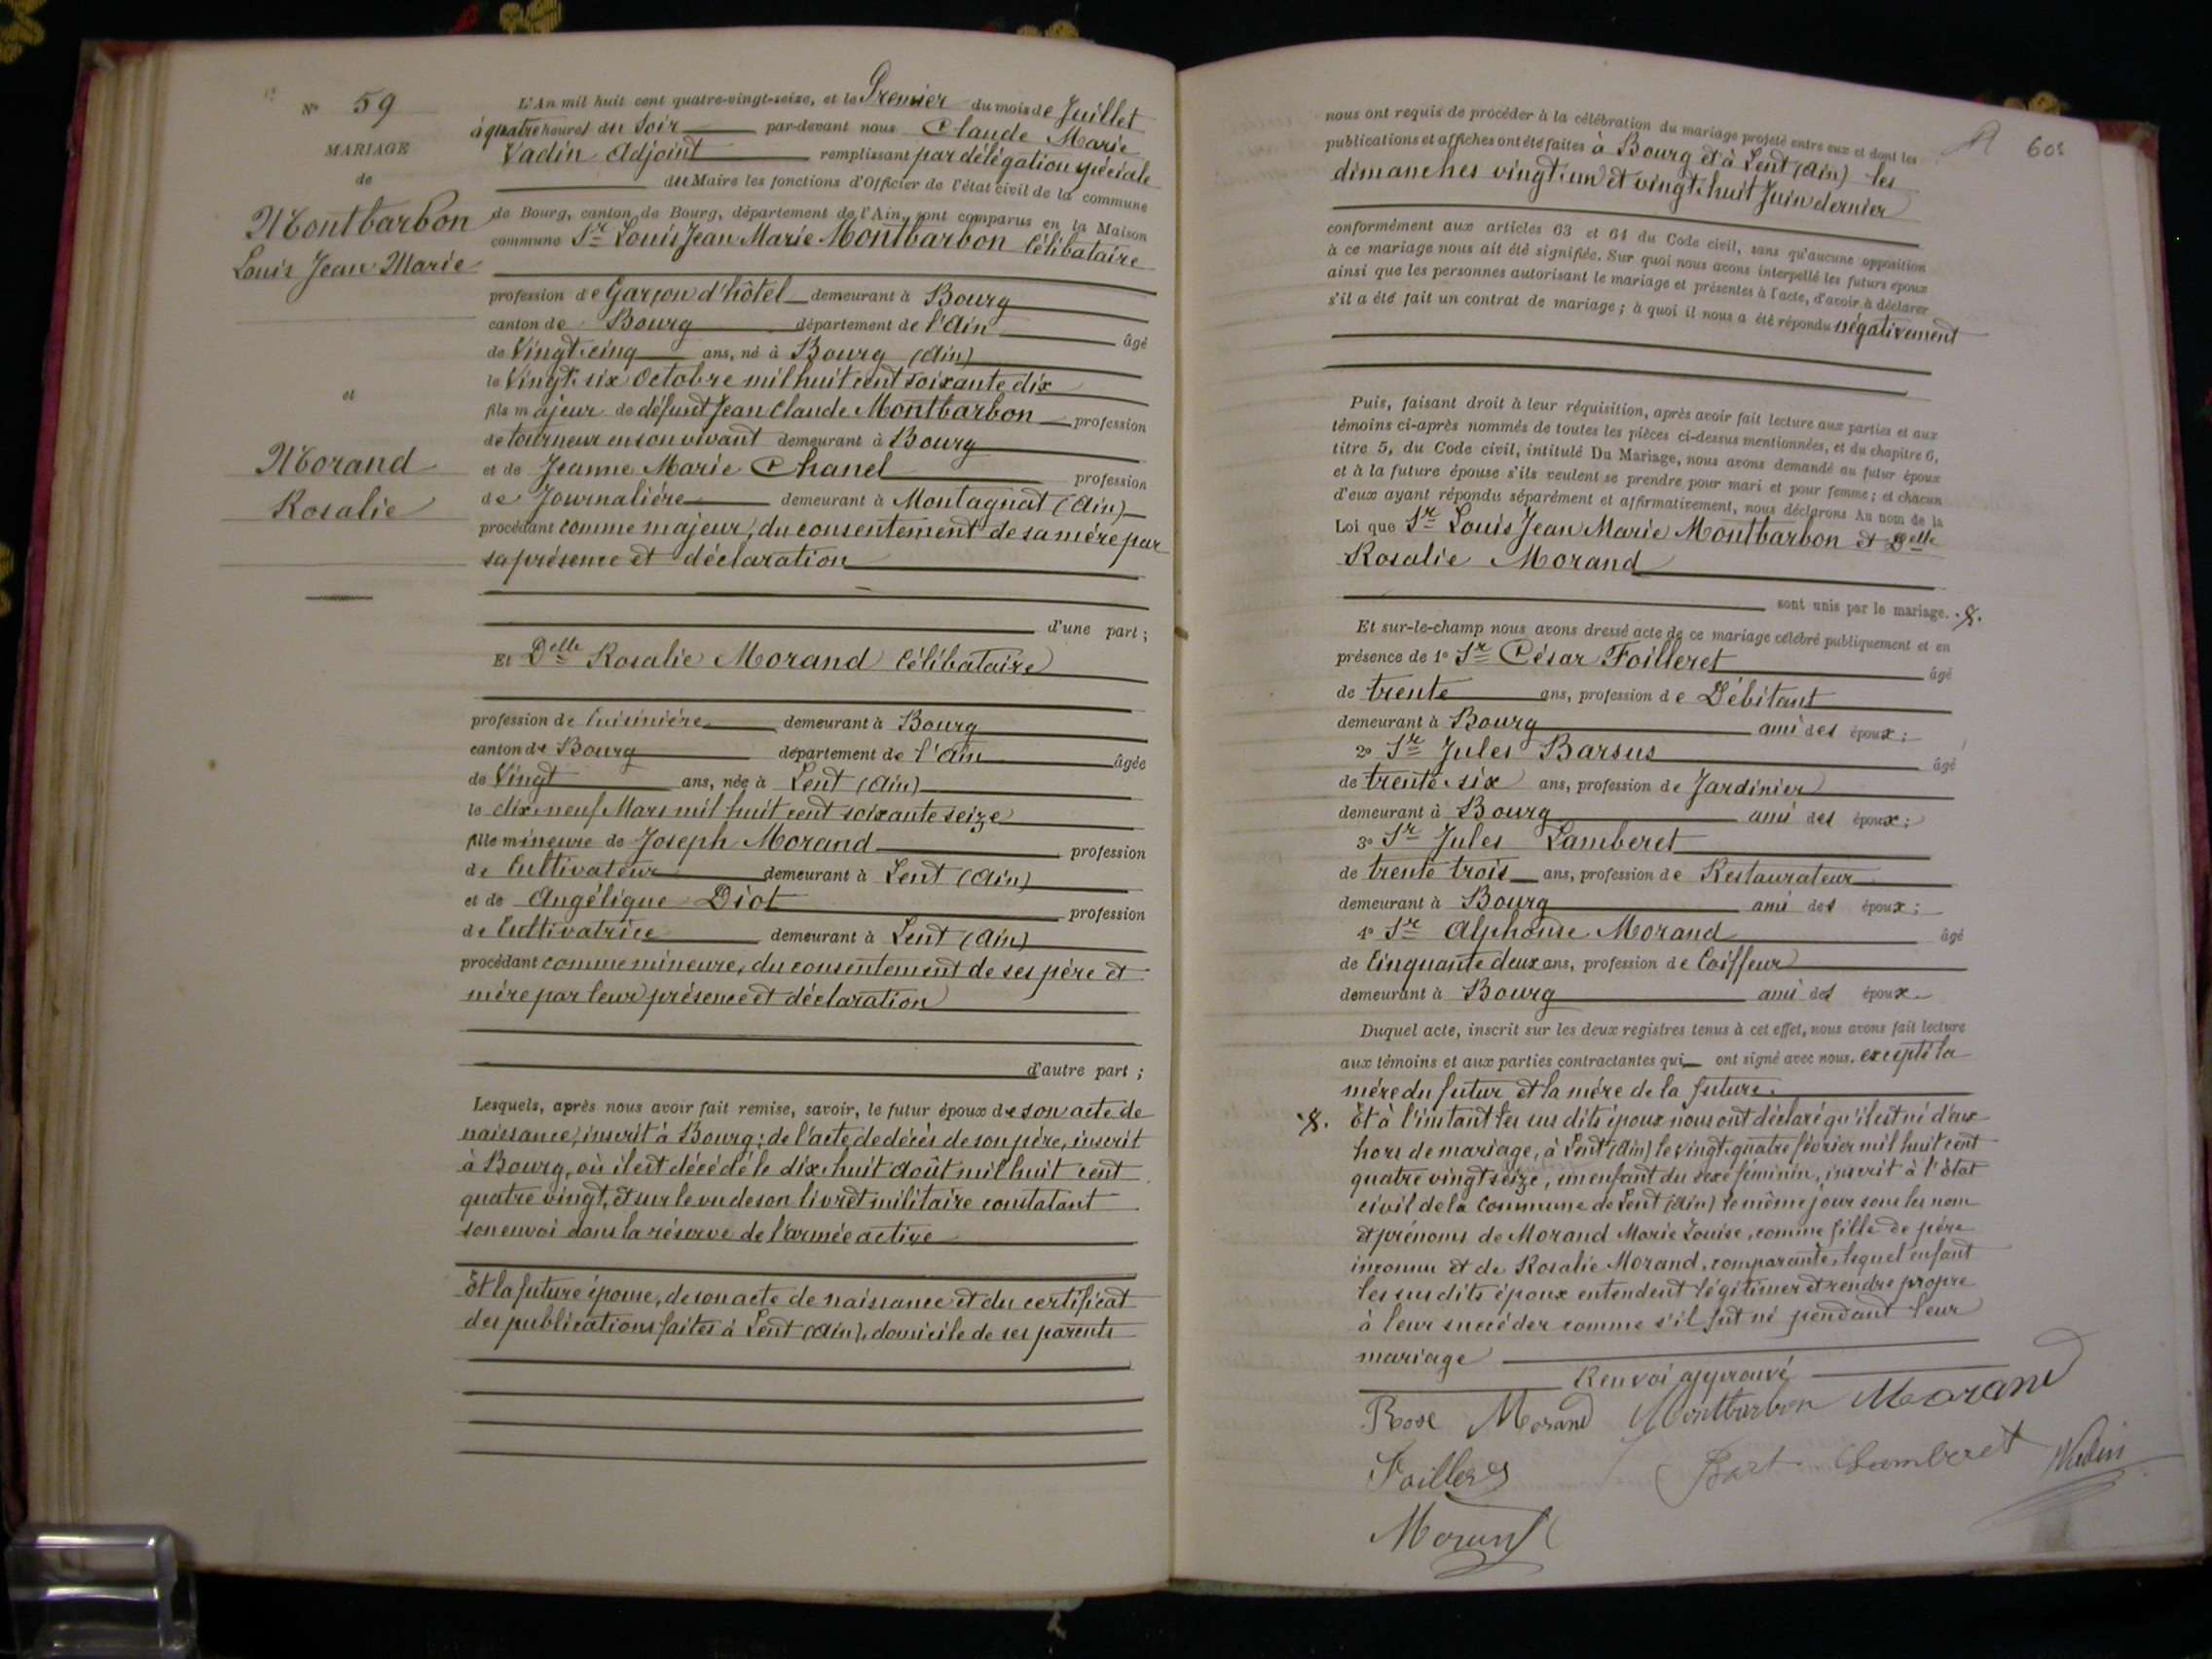 N° 59
MARIAGE
de
Montbarbon
Louis Jean Marie
et
Morand
Rosalie
L'An mil huit cent quatre-vingt-seize, et le Premier du mois de Juillet
à quatre heures du Soir par-devant nous Claude Marie
Vadin Adjoint remplissant par délégation spéciale
du Maire les fonctions d'Officier de l'état civil de la commune
de Bourg, canton de Bourg, département de l'Ain, sont comparus en la Maison
commune Sr Louis Jean Marie Montbarbon Célibataire
profession de Garçon d'hôtel demeurant à Bourg
canton de Bourg département de l'Ain âgé
de Vingt-cinq ans, né à Bourg (Ain)
le Vingt-six Octobre mil huit cent soixante dix
fils majeur de défunt Jean Claude Montbarbon profession
de tourneur en son vivant demeurant à Bourg
et de Jeanne Marie Chanel profession
de Journalière demeurant à Montagnat (Ain)
procédant comme majeur, du consentement de sa mère par
sa présence et déclaration
d'une part ;
Et Delle Rosalie Morand Célibataire
profession de Cuisinière demeurant à Bourg
canton de Bourg département de l'Ain âgée
de Vingt ans, née à Lent (Ain)
le dix-neuf Mars mil huit cent soixante seize
fille mineure de Joseph Morand profession
de Cultivateur demeurant à Lent (Ain)
et de Angélique Diot profession
de Cultivatrice demeurant à Lent (Ain)
procédant comme mineure, du consentement de ses père et
mère par leur présence et déclaration
d'autre part ;
Lesquels, après nous avoir fait remise, savoir, le futur époux de son acte de
naissance, inscrit à Bourg; de l'acte de décès de son père, inscrit
à Bourg, où il est décédé le dix-huit Août mil huit cent
quatre vingt, et sur le vu de son livret militaire constatant
son envoi dans la réserve de l'armée active
Et la future épouse, de son acte de naissance et du certificat
des publications faites à Lent (Ain), domicile de ses parents
608
nous ont requis de procéder à la célébration du mariage projeté entre eux et dont les
publications et affiches ont été faites à Bourg et à Lent (Ain) les
dimanches vingt-un et vingt-huit Juin dernier
conformément aux articles 63 et 64 du Code civil, sans qu'aucune opposition
à ce mariage nous ait été signifiée. Sur quoi nous avons interpellé les futurs époux
ainsi que les personnes autorisant le mariage et présentes à l'acte, d'avoir à déclarer
s'il a été fait un contrat de mariage ; à quoi il nous a été répondu négativement
Puis, faisant droit à leur réquisition, après avoir fait lecture aux parties et aux
témoins ci-après nommés de toutes les pièces ci-dessus mentionnées, et du chapitre 6,
titre 5, du Code civil, intitulé Du Mariage, nous avons demandé au futur époux
et à la future épouse s'ils veulent se prendre pour mari et pour femme ; et chacun
d'eux ayant répondu séparément et affirmativement, nous déclarons Au nom de la
Loi que Sr Louis Jean Marie Montbarbon et Delle
Rosalie Morand
sont unis par le mariage.
Et sur-le-champ nous avons dressé acte de ce mariage célébré publiquement et en
présence de 1° Sr César Foilleret âgé
de trente ans, profession de Débitant
demeurant à Bourg ami des époux ;
2° Sr Jules Barsus âgé
de trente-six ans, profession de Jardinier
demeurant à Bourg ami des époux ;
3° Sr Jules Lamberet
de trente trois ans, profession de Restaurateur
demeurant à Bourg ami des époux ;
4° Sr Alphonse Morand âgé
de Cinquante deux ans, profession de Coiffeur
demeurant à Bourg ami des époux.
Duquel acte, inscrit sur les deux registres tenus à cet effet, nous avons fait lecture
aux témoins et aux parties contractantes qui ont signé avec nous. excepté la
mère du futur et la mère de la future.
Et à l'instant les sus dits époux nous ont déclaré qu'il est né d'eux
hors de mariage, à Lent (Ain) le vingt-quatre février mil huit cent
quatre vingt seize, un enfant du sexe féminin, inscrit à l'État
civil de la Commune de Lent (Ain) le même jour sous les nom
et prénoms de Morand Marie Louise, comme fille de père
inconnu et de Rosalie Morand, comparante, lequel enfant
les sus dits époux entendent légitimer et rendre propre
à leur succéder comme s'il fut né pendant leur
mariage
Renvoi approuvé
Rose Morand Montbarbon Morand
Lamberet Vadin
Morand